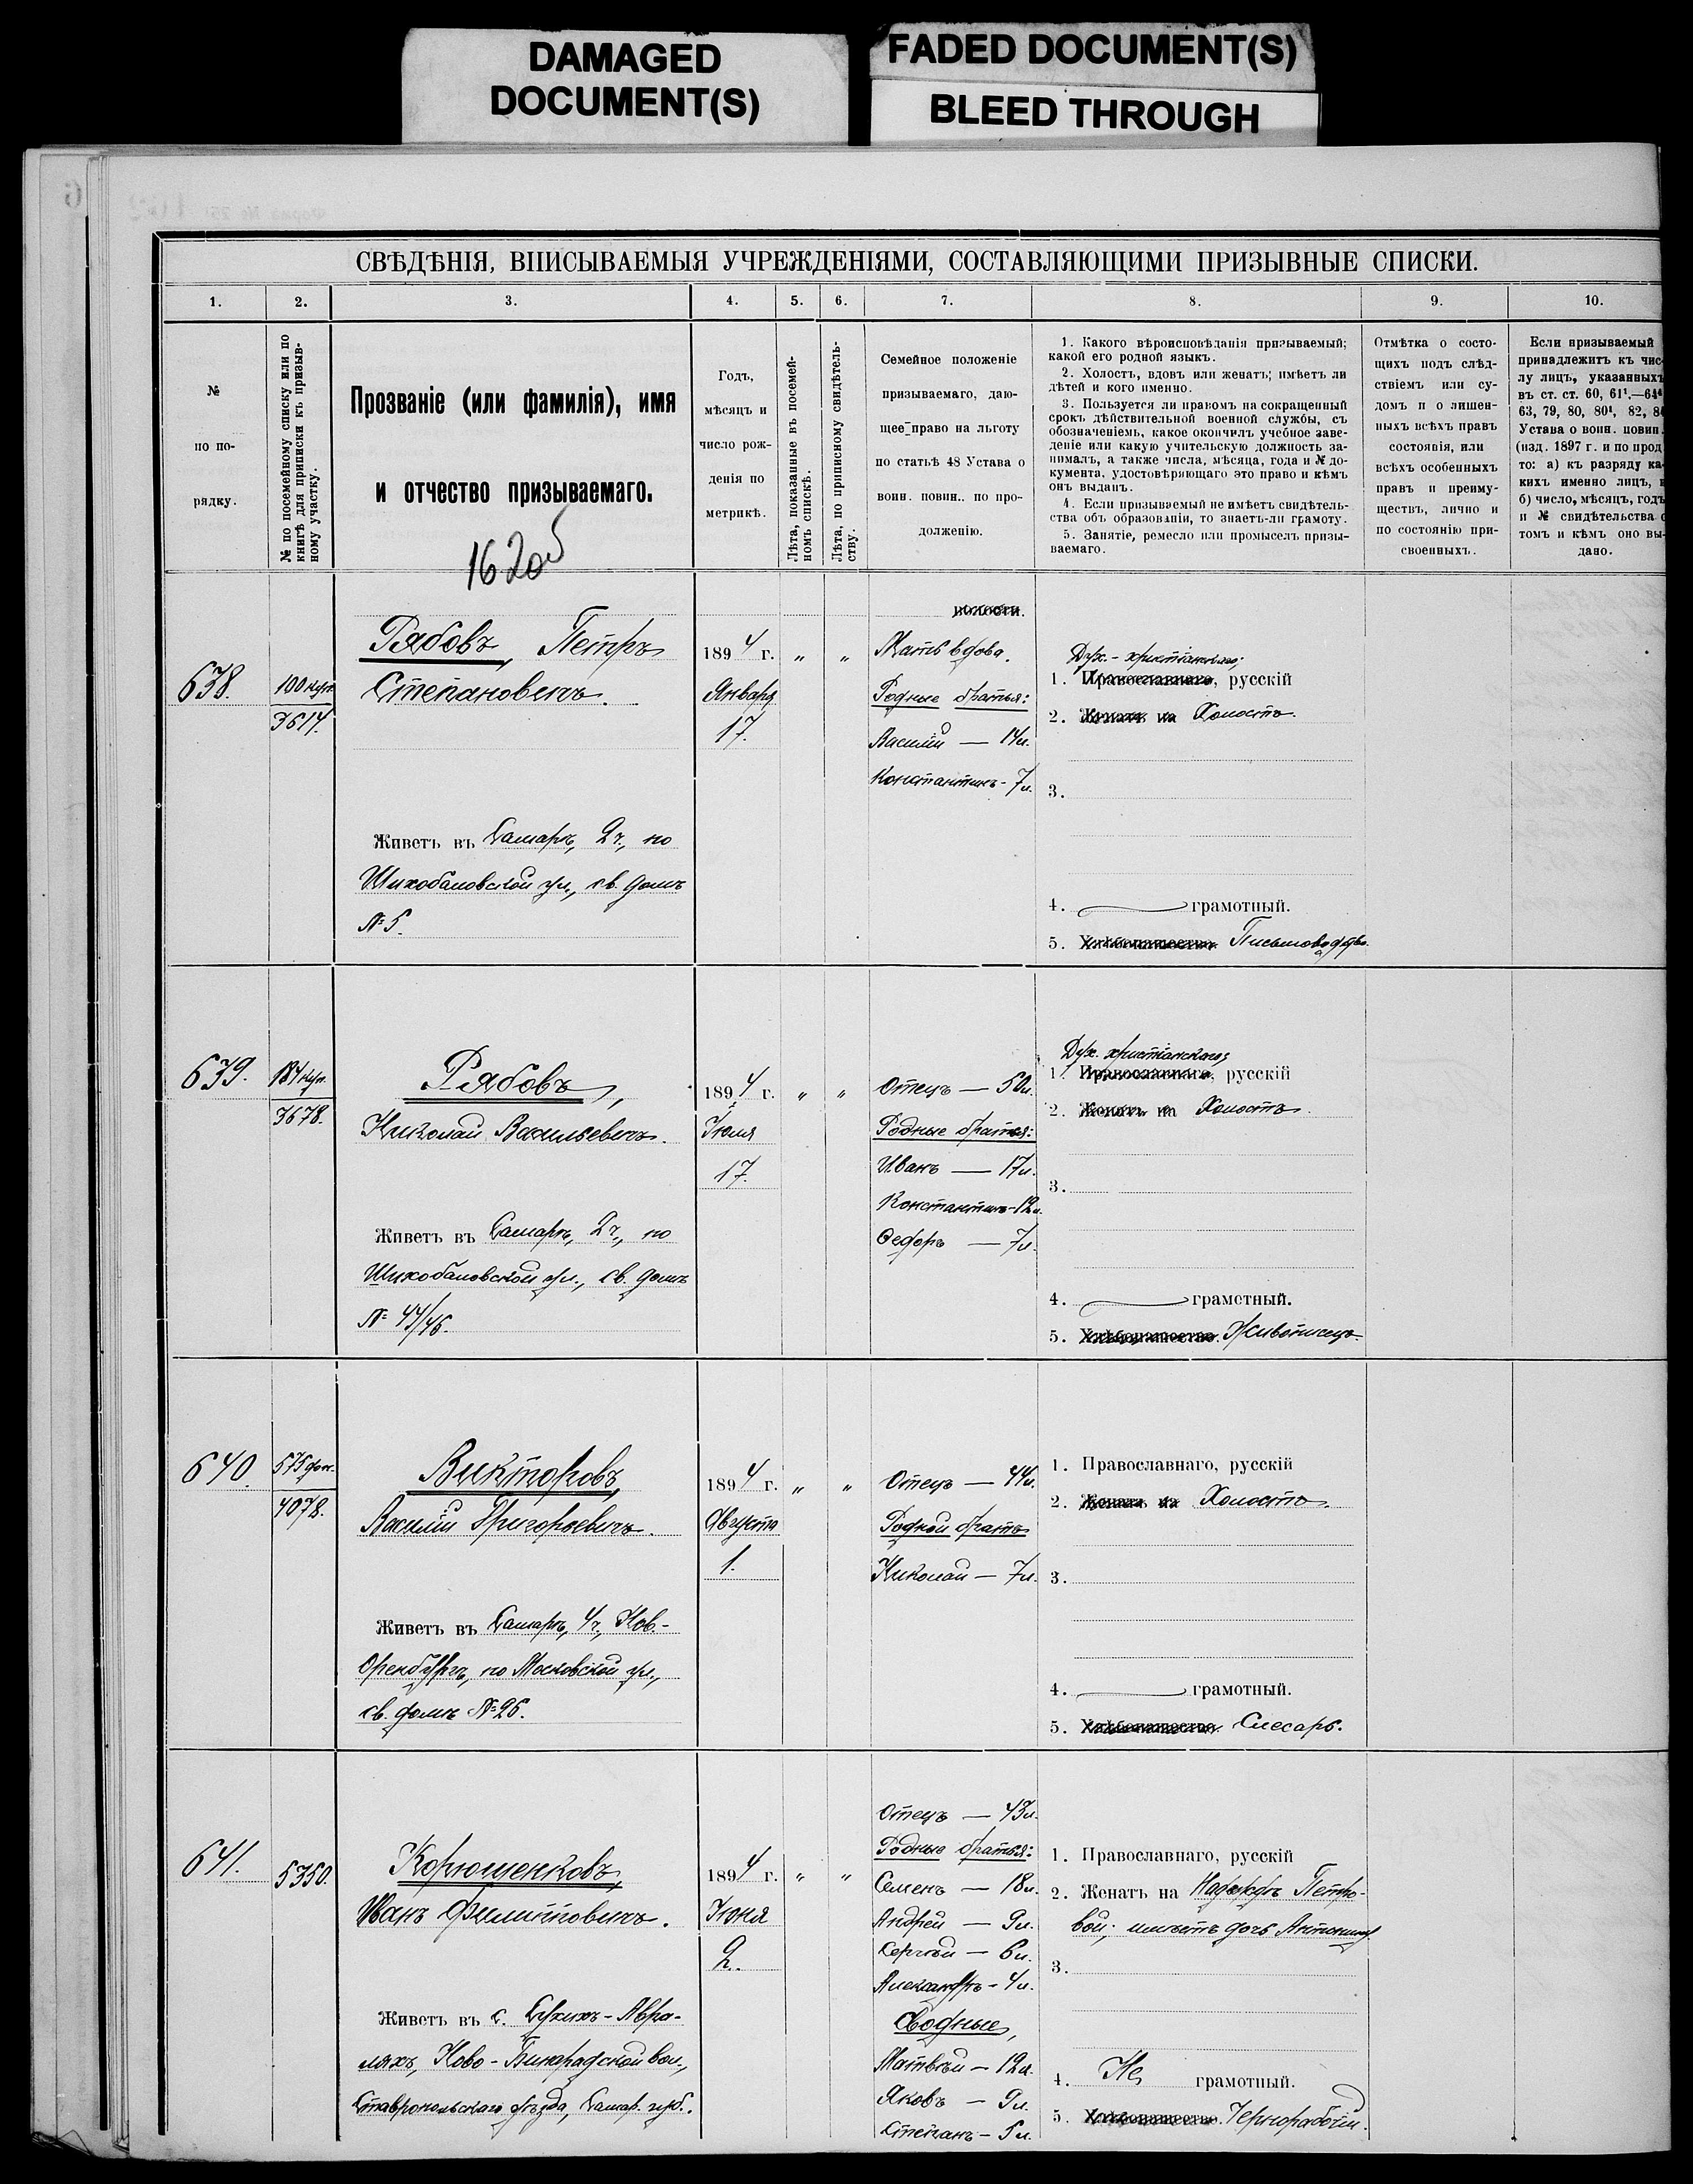 DAMAGED
DOCUMENT(S)
FADED DOCUMENT(S)
BLEED THROUGH
СВѢДѢНІЯ, ВПИСЫВАЕМЫЯ УЧРЕЖДЕНІЯМИ, СОСТАВЛЯЮЩИМИ ПРИЗЫВНЫЕ СПИСКИ.
1. 2. 3. 4. 5. 6. 7. 8. 9. 10.
№
по по-
рядку.
№ по посемейному списку или по
книгѣ для приписки къ призыв-
ному участку.
Прозваніе (или фамилія), имя
и отчество призываемаго.
Годъ,
мѣсяцъ и
число рож-
денія по
метрикѣ.
Лѣта, показанные въ посемей-
номъ спискѣ.
Лѣта, по приписному свидѣтель-
ству.
Семейное положеніе
призываемаго, даю-
щее право на льготу
по статьѣ 48 Устава о
воин. повин.. по про-
долженію.
1. Какого вѣроисповѣданія призываемый;
какой его родной языкъ.
2. Холостъ, вдовъ или женатъ; имѣетъ ли
дѣтей и кого именно.
3. Пользуется ли правомъ на сокращенный
срокъ дѣйствительной военной службы, съ
обозначеніемъ, какое окончилъ учебное заве-
деніе или какую учительскую должность за-
нималъ, а также числа, мѣсяца, года и № до-
кумента, удостовѣряющаго это право и кѣмъ
онъ выданъ.
4. Если призываемый не имѣетъ свидѣтель-
ства объ образованіи, то знаетъ-ли грамоту.
5. Занятіе, ремесло или промыселъ призы-
ваемаго.
Отмѣтка о состо-
щихъ подъ слѣд-
ствіемъ или су-
домъ и о лишен-
ныхъ всѣхъ правъ
состоянія, или
всѣхъ особенныхъ
правъ и преиму-
ществъ, лично и
по состоянію при-
своенныхъ.
Если призываемый
принадлежитъ къ чис-
лу лицъ, указанныхъ
въ ст. ст. 60, 61¹,—64⁴
63, 79, 80, 80¹, 82, 84
Устава о воин. повин.
(изд. 1897 г. и по прод.
то: а) къ разряду ка-
кихъ именно лицъ, и
б) число, мѣсяцъ, годъ
и № свидѣтельства о
томъ и кѣмъ оно вы-
дано.
638.
3614.
Рябовъ, Петръ
Степановичъ.
Живетъ въ Самарѣ, 2 ч., по
Шихобаловской ул., св. домъ
№ 5.
1894 г.
Января
17.
„ „
волости.
Мать вдова.
Родные братья:
Василій — 14 л.
Константинъ - 7 л.
Дух. - христіанскаго;
1. Православнаго, русскій
2. Женатъ на Холостъ.
3.
4. грамотный.
5. Хлѣбопашество. Письмоводство.
639.
3678.
Рябовъ,
Николай Васильевичъ.
Живетъ въ Самарѣ, 2 ч., по
Шихобаловской ул., св. домъ
№ 44/46.
1894 г.
Іюля
17.
„ „
Отецъ — 50 л.
Родные братья:
Иванъ — 17 л.
Константинъ - 12 л.
Ѳедоръ — 7 л.
Дух. христіанскаго;
1. Православнаго, русскій
2. Женатъ на Холостъ.
3.
4. грамотный.
5. Хлѣбопашество. Живописецъ.
640.
4078.
Викторовъ,
Василій Григорьевичъ.
Живетъ въ Самарѣ, 4 ч., Нов.-
Оренбургъ, по Московской ул.,
св. домъ № 26.
1894 г.
Августа
1.
„ „
Отецъ — 44 л.
Родной братъ
Николай — 7 л.
1. Православнаго, русскій
2. Женатъ на Холостъ.
3.
4. грамотный.
5. Хлѣбопашество. Слесарь.
641.
5350.
Корюшенковъ,
Иванъ Филипповичъ.
Живетъ въ с.
Ставропольскаго уѣзда, Самар. губ.
1894 г.
Іюня
2.
„ „
Отецъ — 43 л.
Родные братья:
Семенъ — 18 л.
Андрей — 9 л.
Сергѣй — 6 л.
Александръ - 4 л.
Сводные,
Матвѣй — 12 л.
Яковъ — 9 л.
Степанъ — 5 л.
1. Православнаго, русскій
2. Женатъ на Надеждѣ Петро-
вой; имѣетъ дочь Антонину
3.
4. Не грамотный.
5. Хлѣбопашество. Чернорабочій.